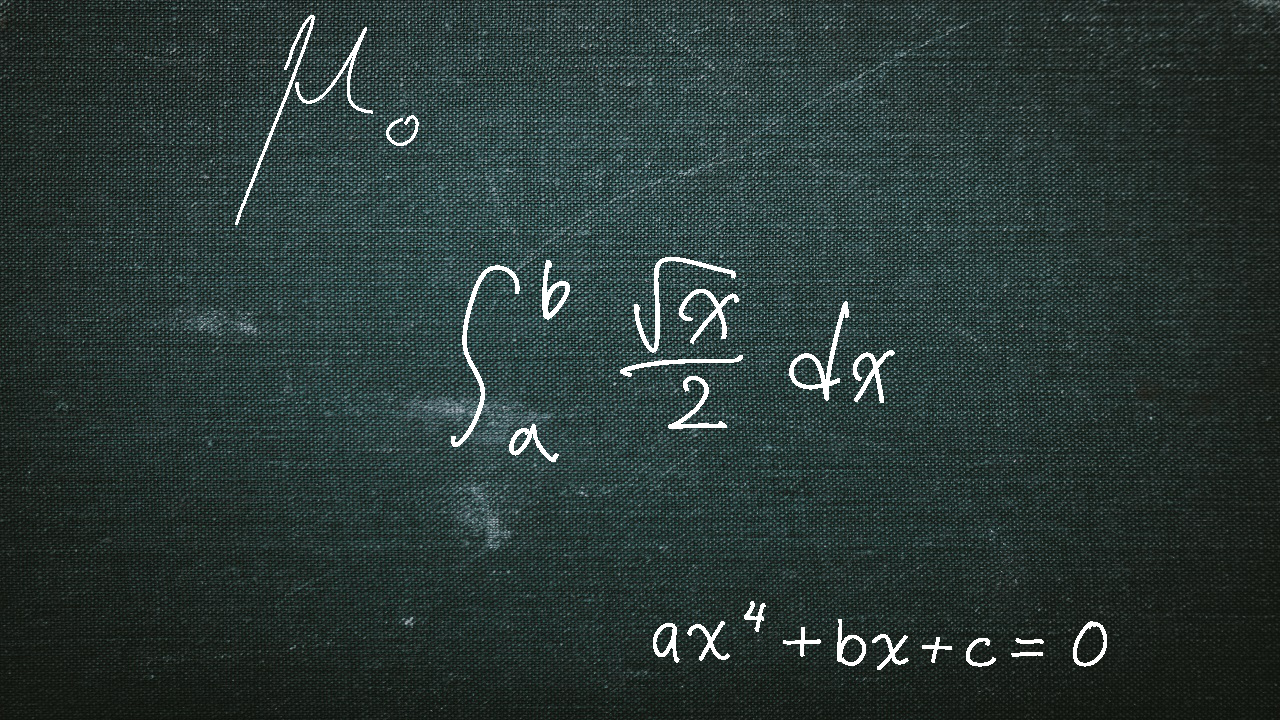 μ₀
∫ₐᵇ √x/2 dx
ax⁴+bx+c=0